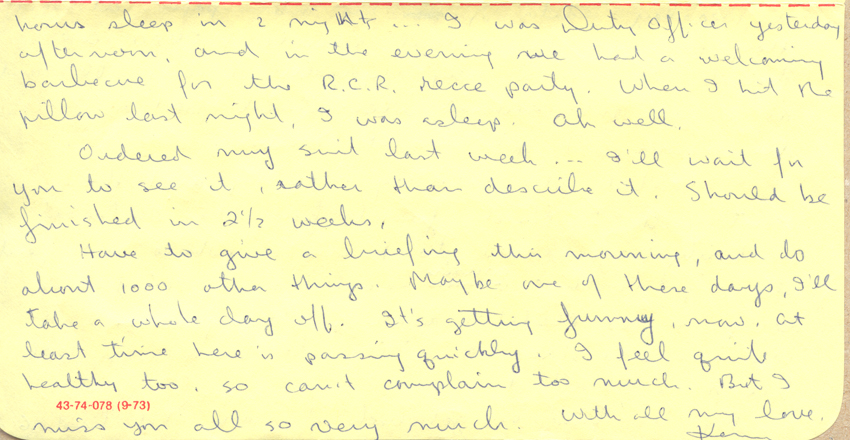 hours sleep in 2 nights ... I was Duty Officer yesterday
afternoon, and in the evening we had a welcoming
barbecue for the R.C.R. recce party. When I hit the
pillow last night, I was asleep. Oh well.
Ordered my suit last week ... I'll wait for
you to see it, rather than describe it. Should be
finished in 2½ weeks.
Have to give a briefing this morning, and do
about 1000 other things. Maybe one of these days, I'll
take a whole day off. It's getting funny, now, at
least time here is passing quickly. I feel quite
healthy too, so can't complain too much. But I
43-74-078 (9-73)
miss you all so very much. With all my love.